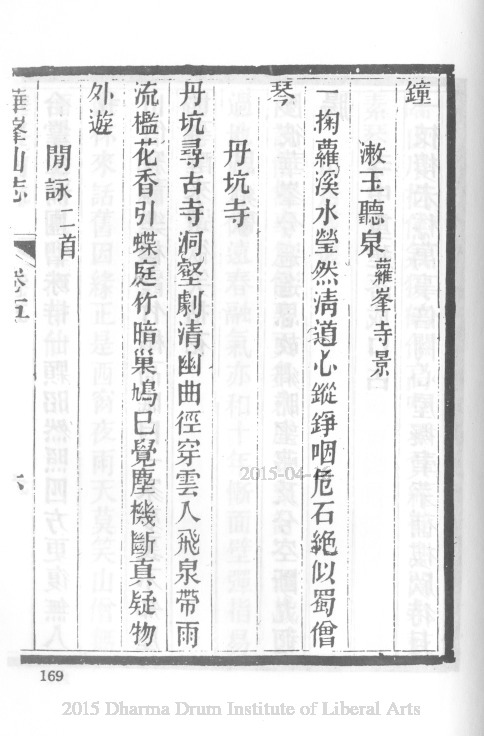 鐘
漱玉聽泉 蘿峯寺景
一掬蘿溪水瑩然清道心鏦錚咽危石絶似蜀僧
琴
丹坑寺
丹坑尋古寺洞壑劇清幽曲徑穿雲入飛泉帶雨
流檻花香引蝶庭竹暗巢鳩已覺塵機斷真疑物
外遊
閒詠二首
華峯山志 卷五 六
2015-04-
169
2015 Dharma Drum Institute of Liberal Arts